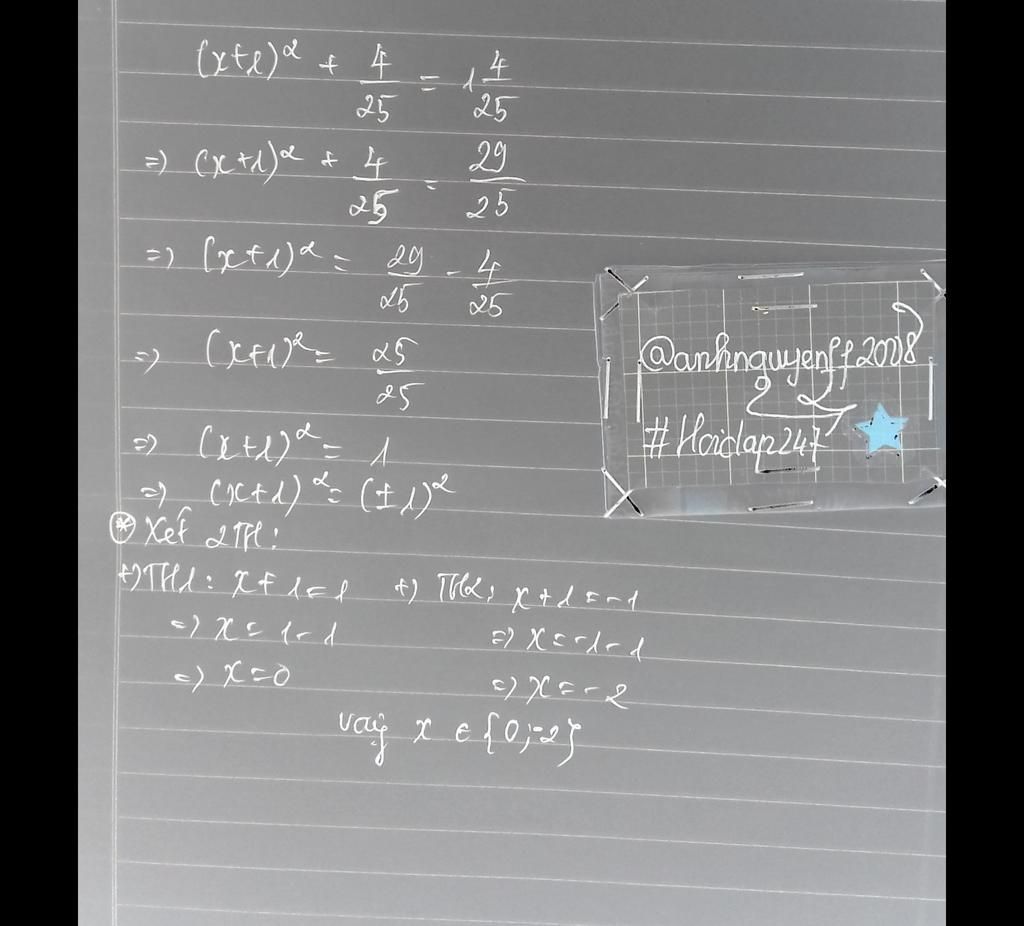 (x+1)² + 4/25 = 1 4/25
=) (x+1)² + 4/25 = 29/25
=) (x+1)² = 29/25 - 4/25
=) (x+1)² = 25/25
=) (x+1)² = 1
=) (x+1)² = (±1)²
* Xét 2TH:
+) TH1: x + 1 = 1 +) TH2: x + 1 = -1
=) x = 1 - 1 =) x = -1 - 1
=) x = 0 =) x = -2
Vậy x ∈ {0;-2}
@anhnguyenff2008
#Hoidap247